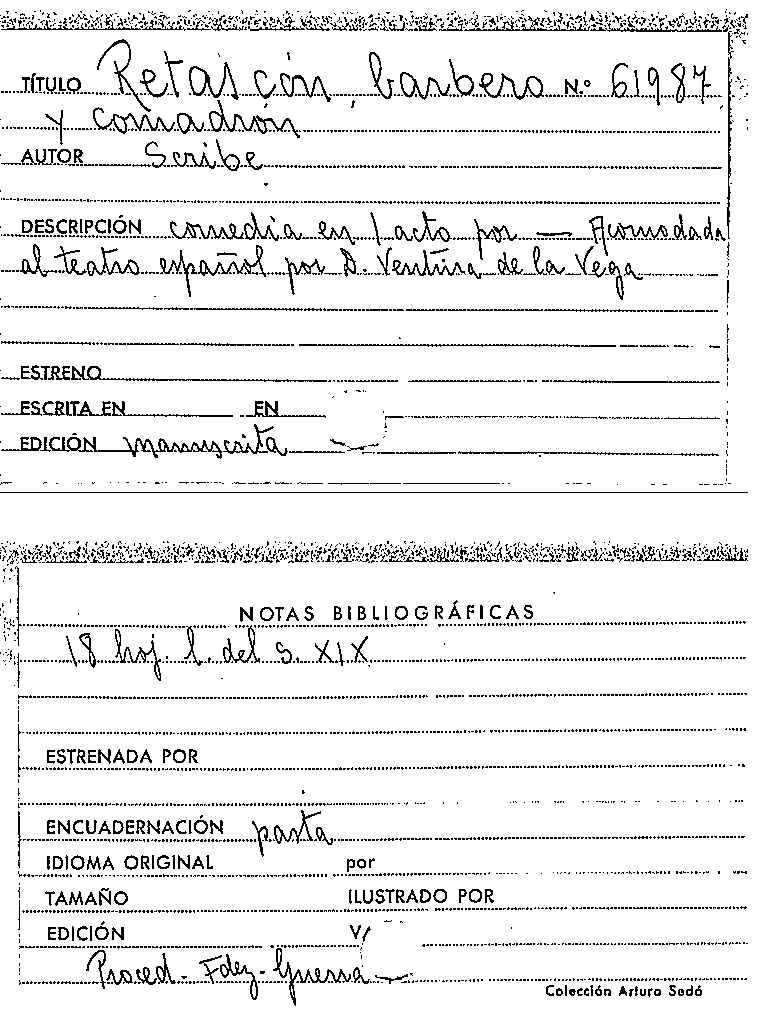 TÍTULO Retascón, barbero N.º 61987
y comadrón
AUTOR Scribe
DESCRIPCIÓN comedia en 1 acto por — Acomodada
al teatro español por D. Ventura de la Vega
ESTRENO
ESCRITA EN EN
EDICIÓN manuscrita
NOTAS BIBLIOGRÁFICAS
18 hoj. l. del s. XIX
ESTRENADA POR
ENCUADERNACIÓN pasta
IDIOMA ORIGINAL por
TAMAÑO ILUSTRADO POR
EDICIÓN V/
Proced. Fdez-Guerra
Colección Arturo Sedó